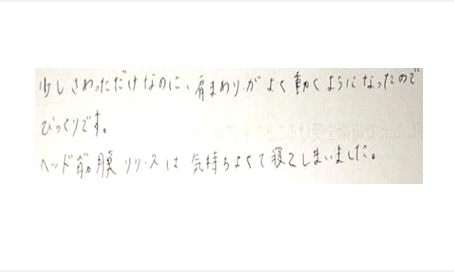 少しさわっただけなのに、肩まわりがよく動くようになったので
びっくりです。
ヘッド筋膜リリースは気持ちよくて寝てしまいました。